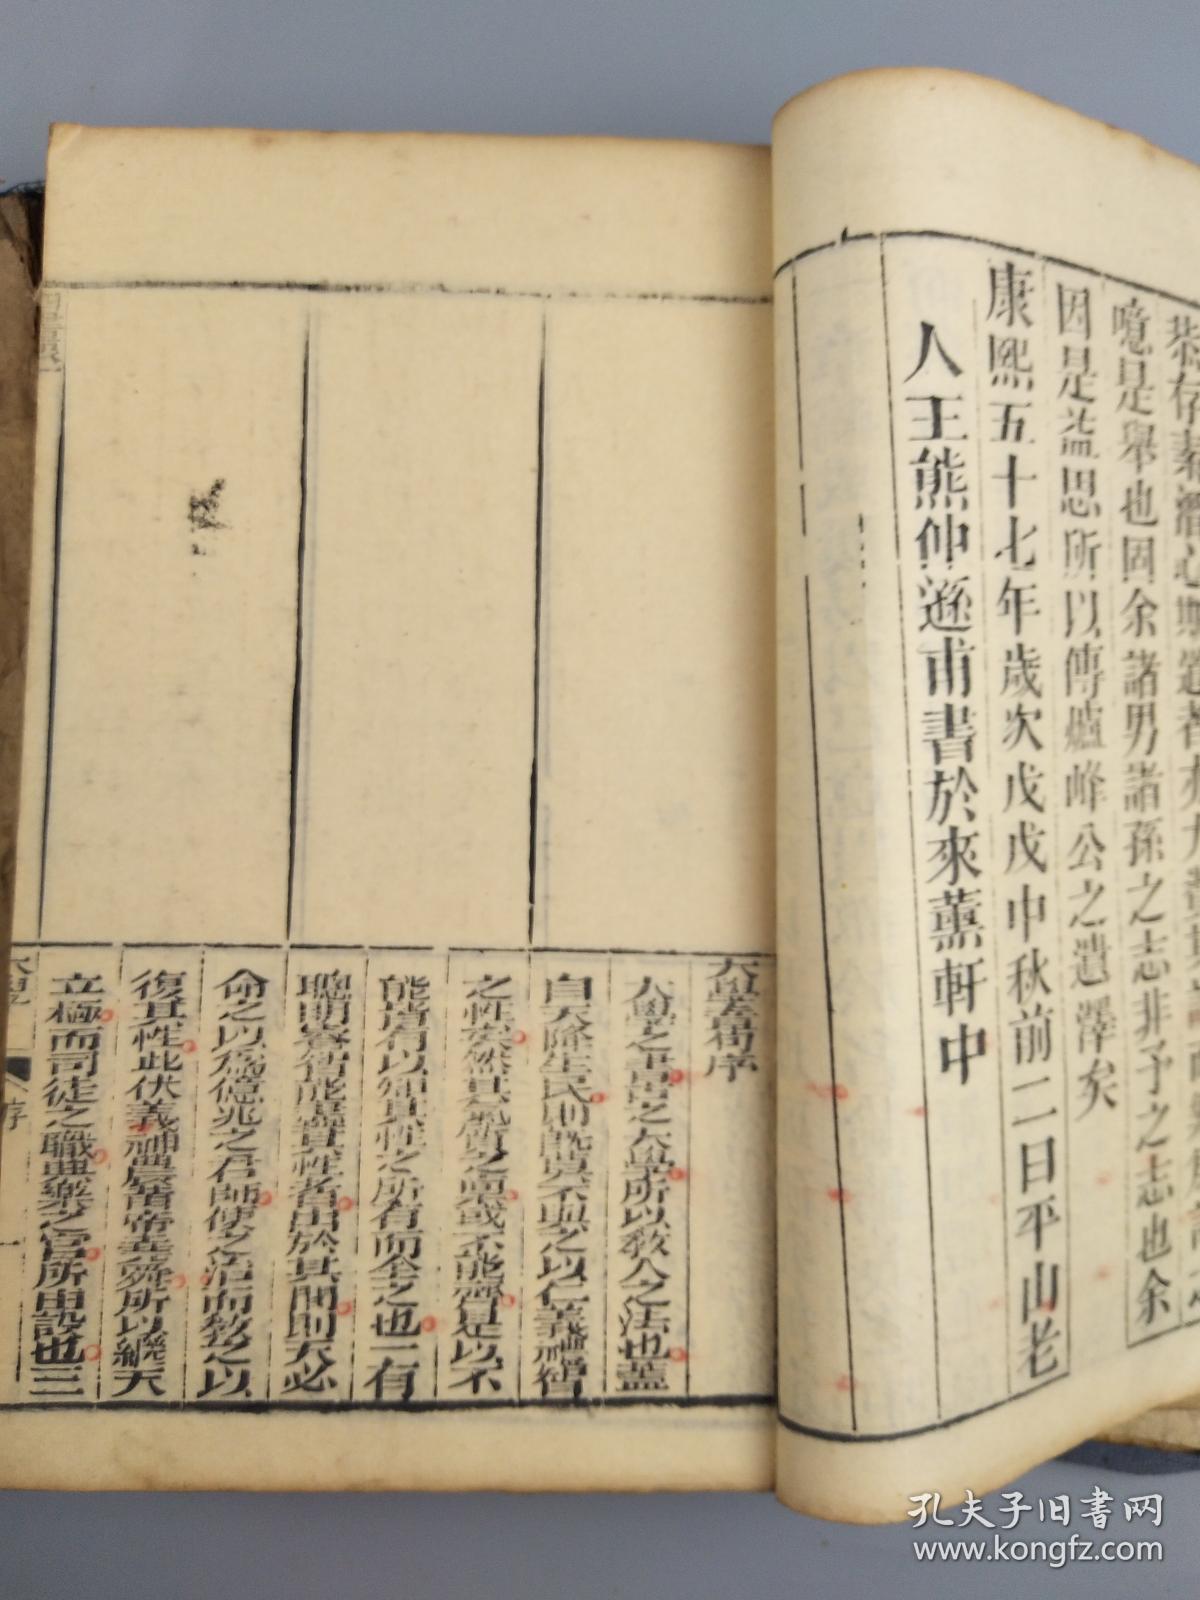 噫是舉也固余諸男諸孫之志非予之志也余
因是益思所以傳爐峰公之遺澤矣
康熙五十七年歲次戊戌中秋前二日平山老
人王熊仲遜甫書於來薰軒中
大學章句序
大學之書古之大學所以教人之法也蓋
自天降生民則既莫不與之以仁義禮智
之性矣然其氣質之稟或不能齊是以不
能皆有以知其性之所有而全之也一有
聰明睿智能盡其性者出於其間則天必
命之以爲億兆之君師使之治而教之以
復其性此伏羲神農黃帝堯舜所以繼天
立極而司徒之職典樂之官所由設也三
大學 序 一
孔夫子旧书网
www.kongfz.com